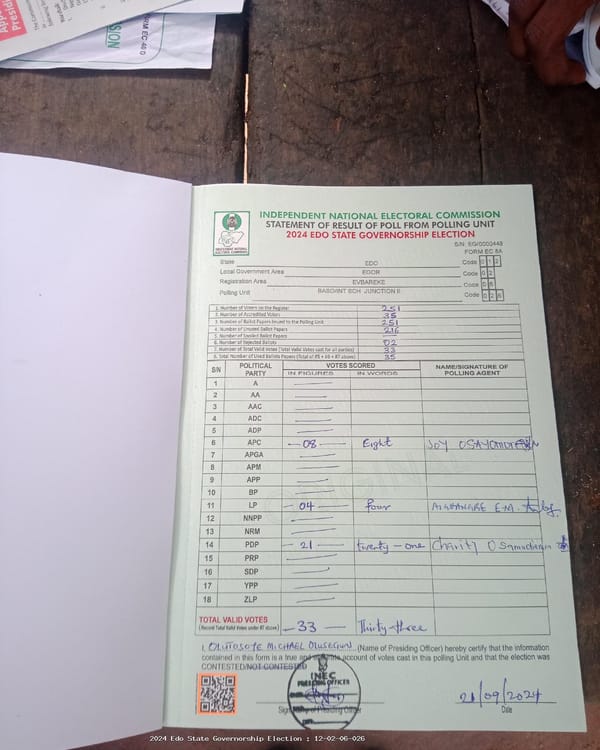 FORM EC 40 G
INDEPENDENT NATIONAL ELECTORAL COMMISSION
STATEMENT OF RESULT OF POLL FROM POLLING UNIT
2024 EDO STATE GOVERNORSHIP ELECTION
FORM EC 8A
State EDO Code 0 1 2
Local Government Area EGOR Code 0 2
Registration Area EVBAREKE Code 0 6
Polling Unit BASO/INT SCH. JUNCTION II Code 0 2 6
1. Number of Voters on the Register 251
2. Number of Accredited Voters 35
3. Number of Ballot Papers Issued to the Polling Unit 251
4. Number of Unused Ballot Papers 216
5. Number of Spoiled Ballot Papers —
6. Number of Rejected Ballots 02
7. Number of Total Valid Votes (Total Valid Votes cast for all parties) 33
8. Total Number of Used Ballots Papers (Total of #5 + #6 + #7 above) 35
S/N POLITICAL PARTY VOTES SCORED NAME/SIGNATURE OF POLLING AGENT
IN FIGURES IN WORDS
1 A —
2 AA —
3 AAC —
4 ADC —
5 ADP —
6 APC —08— Eight JOY
7 APGA —
8 APM —
9 APP —
10 BP —
11 LP —04— four E.M.
12 NNPP —
13 NRM —
14 PDP —21— twenty-one Charity
15 PRP —
16 SDP —
17 YPP —
18 ZLP —
TOTAL VALID VOTES —33— Thirty-three
(Record Total Valid Votes under #7 above)
I, OLUTOSOYE MICHAEL OLUSEGUN (Name of Presiding Officer) hereby certify that the information
contained in this form is a true and account of votes cast in this polling Unit and that the election was
CONTESTED/NOT CONTESTED
INEC
PRESIDING OFFICER
Signature of Presiding Officer
21/09/2024
Date
2024 Edo State Governorship Election : 12-02-06-026